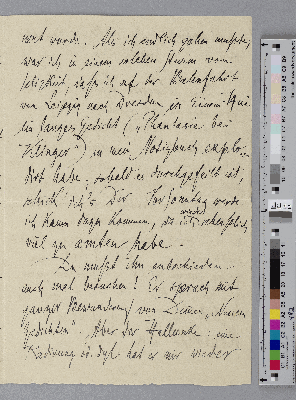 wert wurde. Als ich endlich gehen musste,
war ich in einem solchen Sturm von
Seligkeit, dass ich auf der Bahnfahrt
von Leipzig nach Dresden, in einem
ein langes Gedicht („Phantasie bei
Klinger") in mein Notizbuch
habe. Sobald es durchgefeilt ist
schick ich's Dir. Vor Sonntag werde
ich kaum dazu kommen, da ich wieder
viel zu arbeiten habe. –
Du musst ihn entschieden
noch mal besuchen! Er sprach mit
ganzer Bewunderung von Deinen „Neuen
Gedichten". Aber der Hallunke: eine
Radierung od. dgl. hat er mir wieder